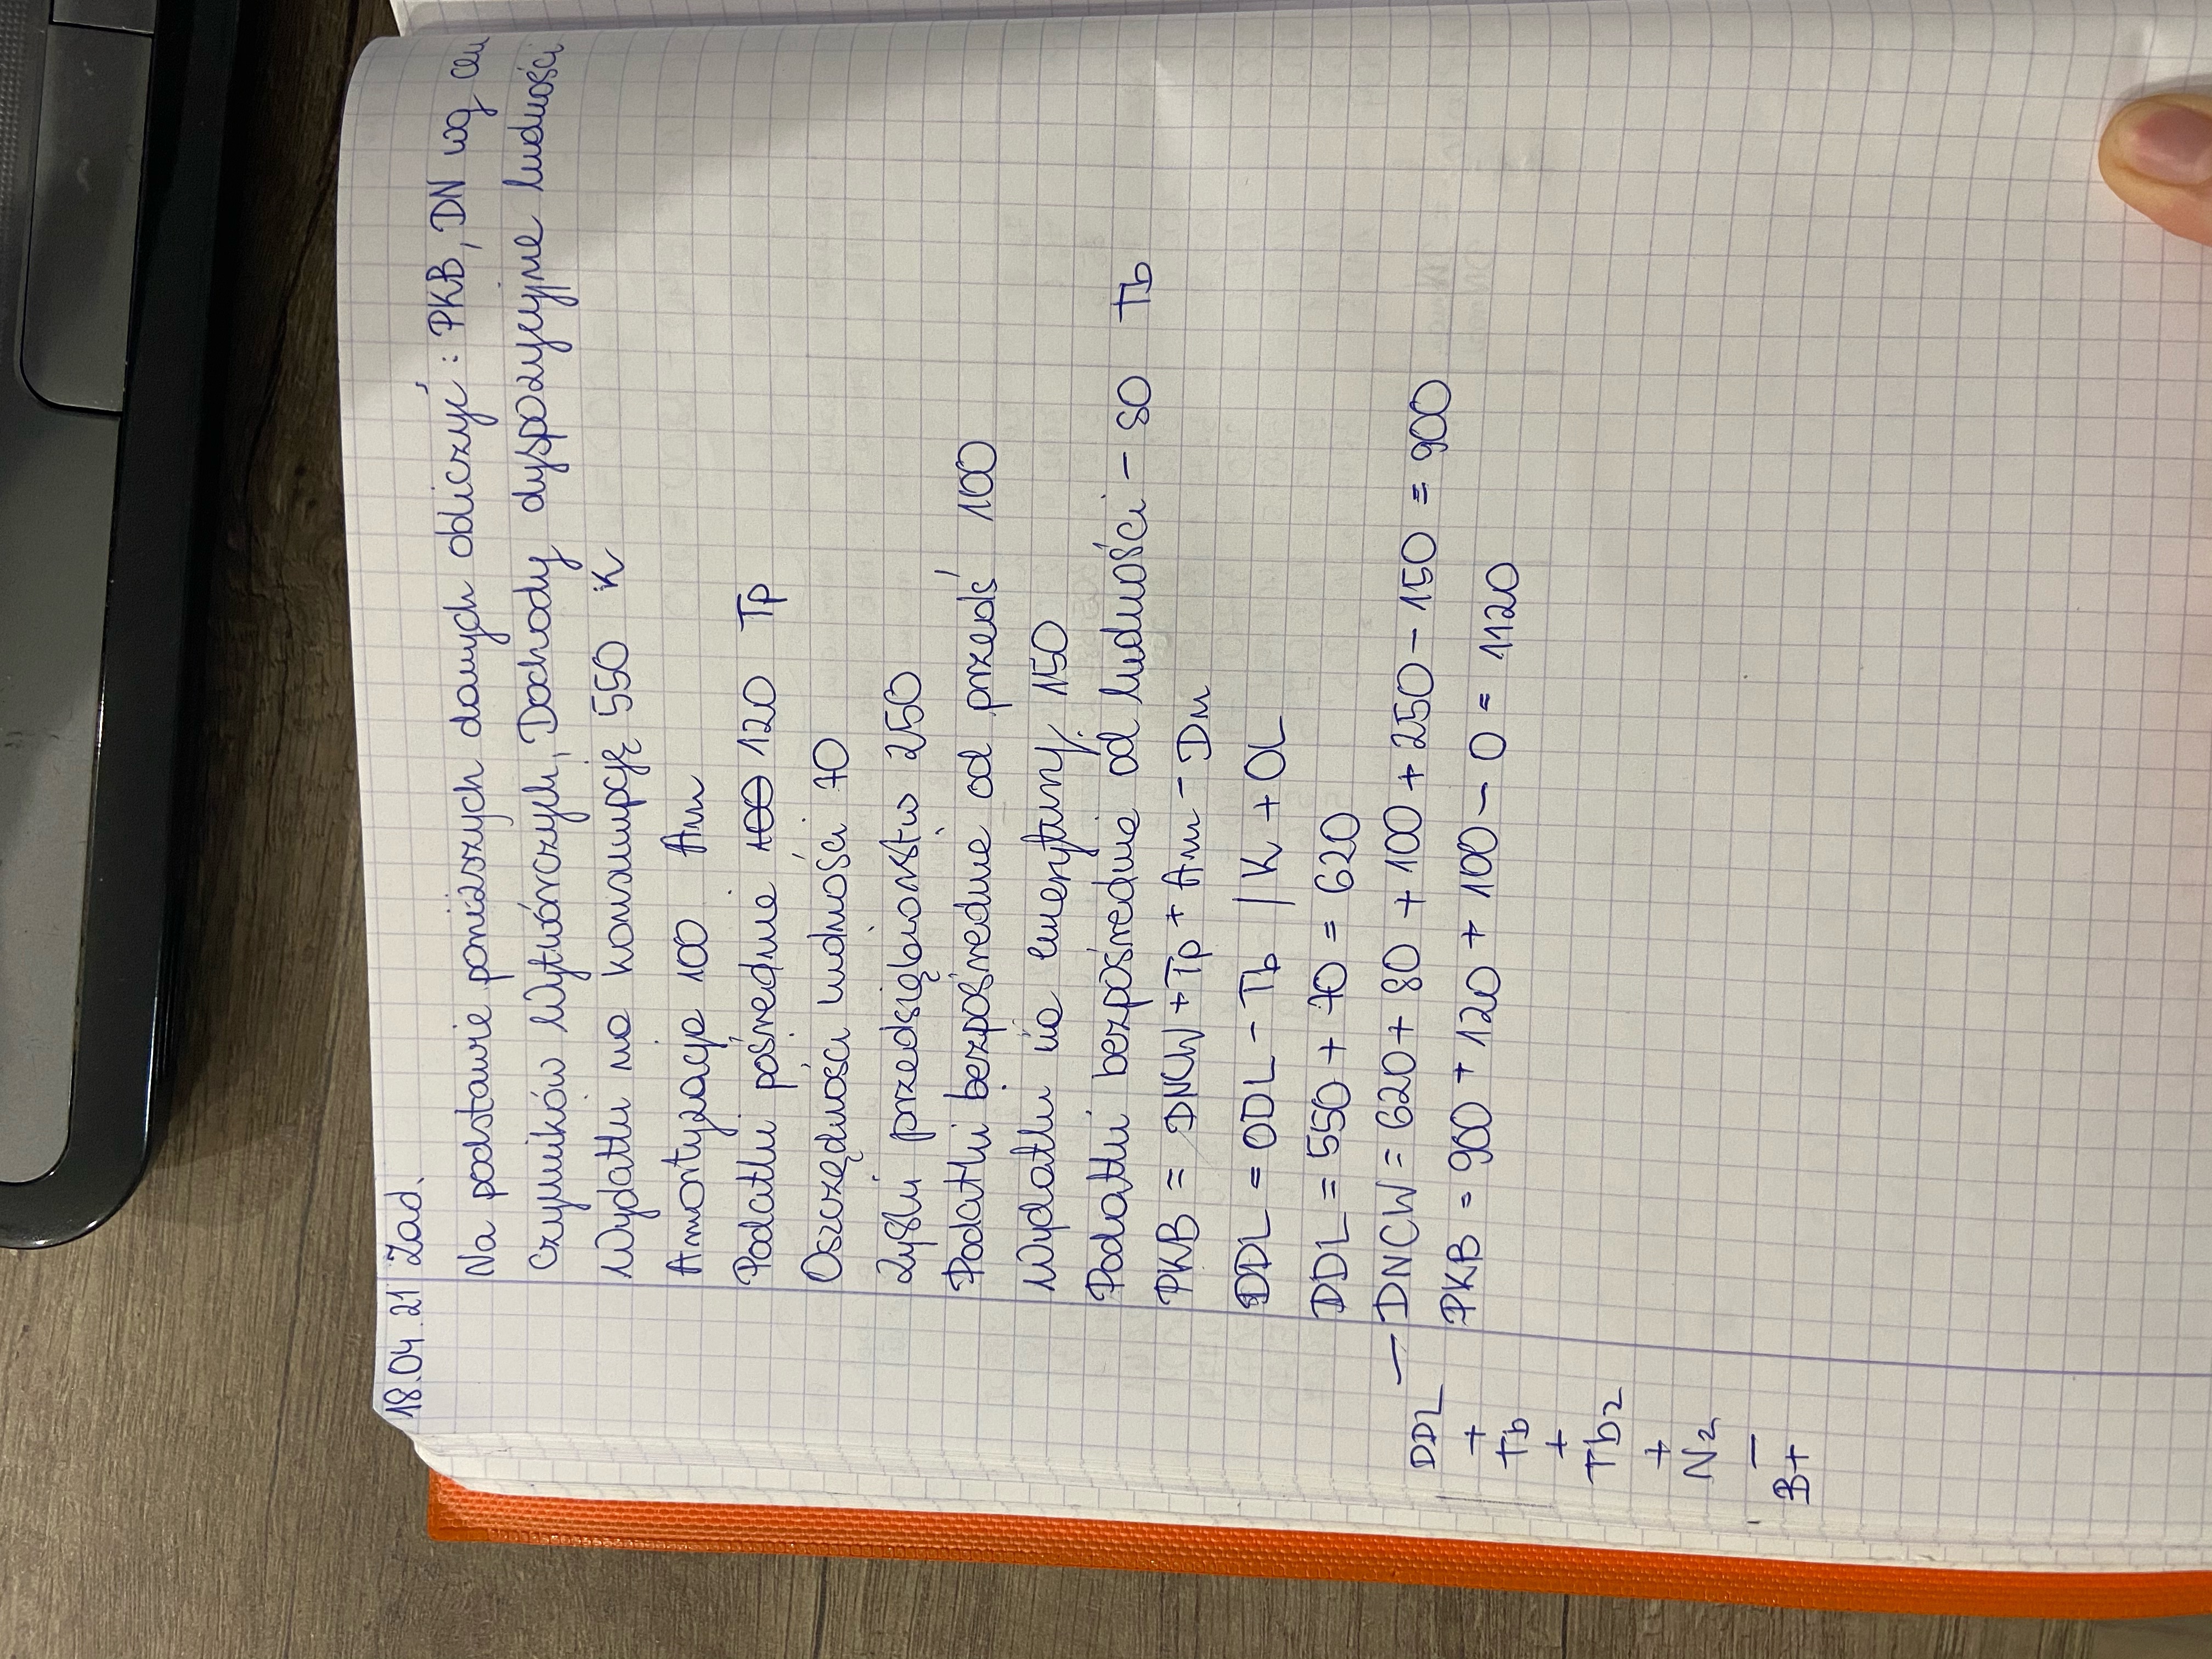 18.04.21 Zad.
Na podstawie poniższych danych obliczyć: PKB, DN wg cen
Czynników Wytwórczych, Dochody dyspozycyjne ludności
Wydatki na konsumpcję 550 K
Amortyzacja 100 Am
Podatki pośrednie 100 120 Tp
Oszczędności ludności 70
Zyski przedsiębiorstw 250
Podatki bezpośrednie od przeds 100
Wydatki na emerytury 150
Podatki bezpośrednie od ludności - 80 Tb
PKB = DNCW + Tp + Am - Dn
DDL = ODL - Tb / K + OL
DDL = 550 + 70 = 620
— DNCW = 620 + 80 + 100 + 250 - 150 = 900
PKB = 900 + 120 + 100 - 0 = 1120
DDL
+
Tb
+
Tb2
+
N2
—
B+